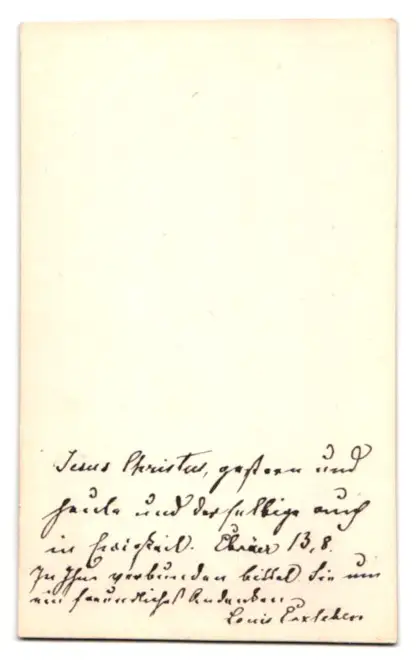 Jesus Christus, gestern und
heute und derselbige auch
in Ewigkeit. Ebräer 13, 8.
In Ihm verbunden bittet Sie um
ein freundliches Andenken
Louis